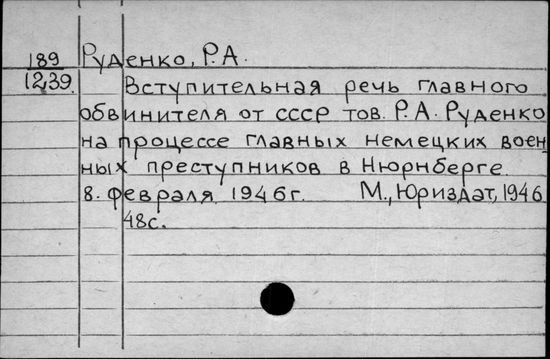 189 Руденко, Р.А.
1239. Вступительная речь главного
обвинителя от СССР тов. Р.А. Руденко
на процессе главных немецких воен
ных преступников в Нюрнберге.
8. февраля 1946г. М., Юриздат, 1946
48с.